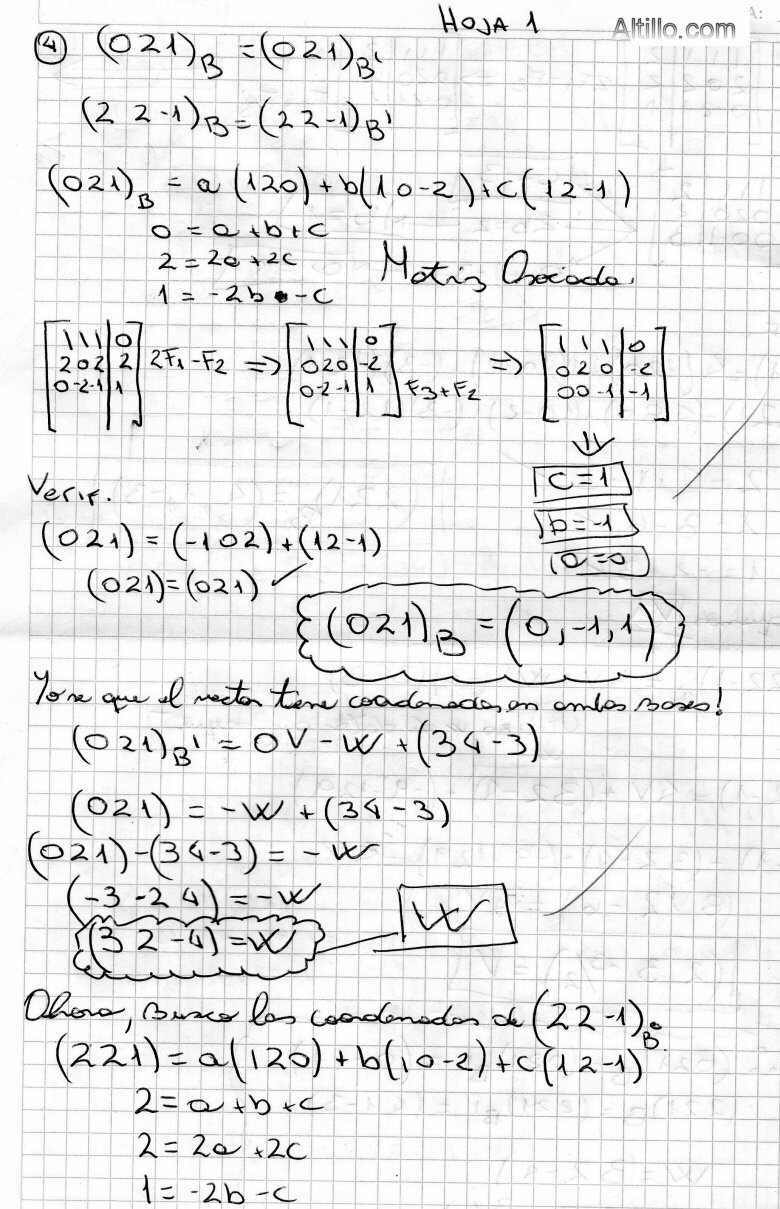 HOJA 1
Altillo.com
④ (021)B = (021)B'
(2 2 -1)B = (2 2 -1)B'
(021)B = a (120) + b(1 0 -2) + c(12-1)
0 = a + b + c
2 = 2a + 2c
1 = -2b - c
Matriz Asociada.
[1 1 1 | 0] [1 1 1 | 0] [1 1 1 | 0]
[2 0 2 | 2] 2F1-F2 => [0 2 0 | -2] => [0 2 0 | -2]
[0 -2 -1 | 1] [0 -2 -1 | 1] F3+F2 [0 0 -1 | -1]
⇓
c = 1
b = -1
a = 0
Verif.
(021) = (-1 0 2) + (12-1)
(021) = (021) ✓
(021)B = (0, -1, 1)
Yo se que el vector tiene coordenadas en ambas bases!
(021)B' = 0V - W + (34-3)
(021) = -W + (34-3)
(021) - (34-3) = -W
(-3 -2 4) = -W
(3 2 -4) = W
W
Ahora, Busco las coordenadas de (22-1)B
(221) = a(120) + b(10-2) + c(12-1)
2 = a + b + c
2 = 2a + 2c
1 = -2b - c